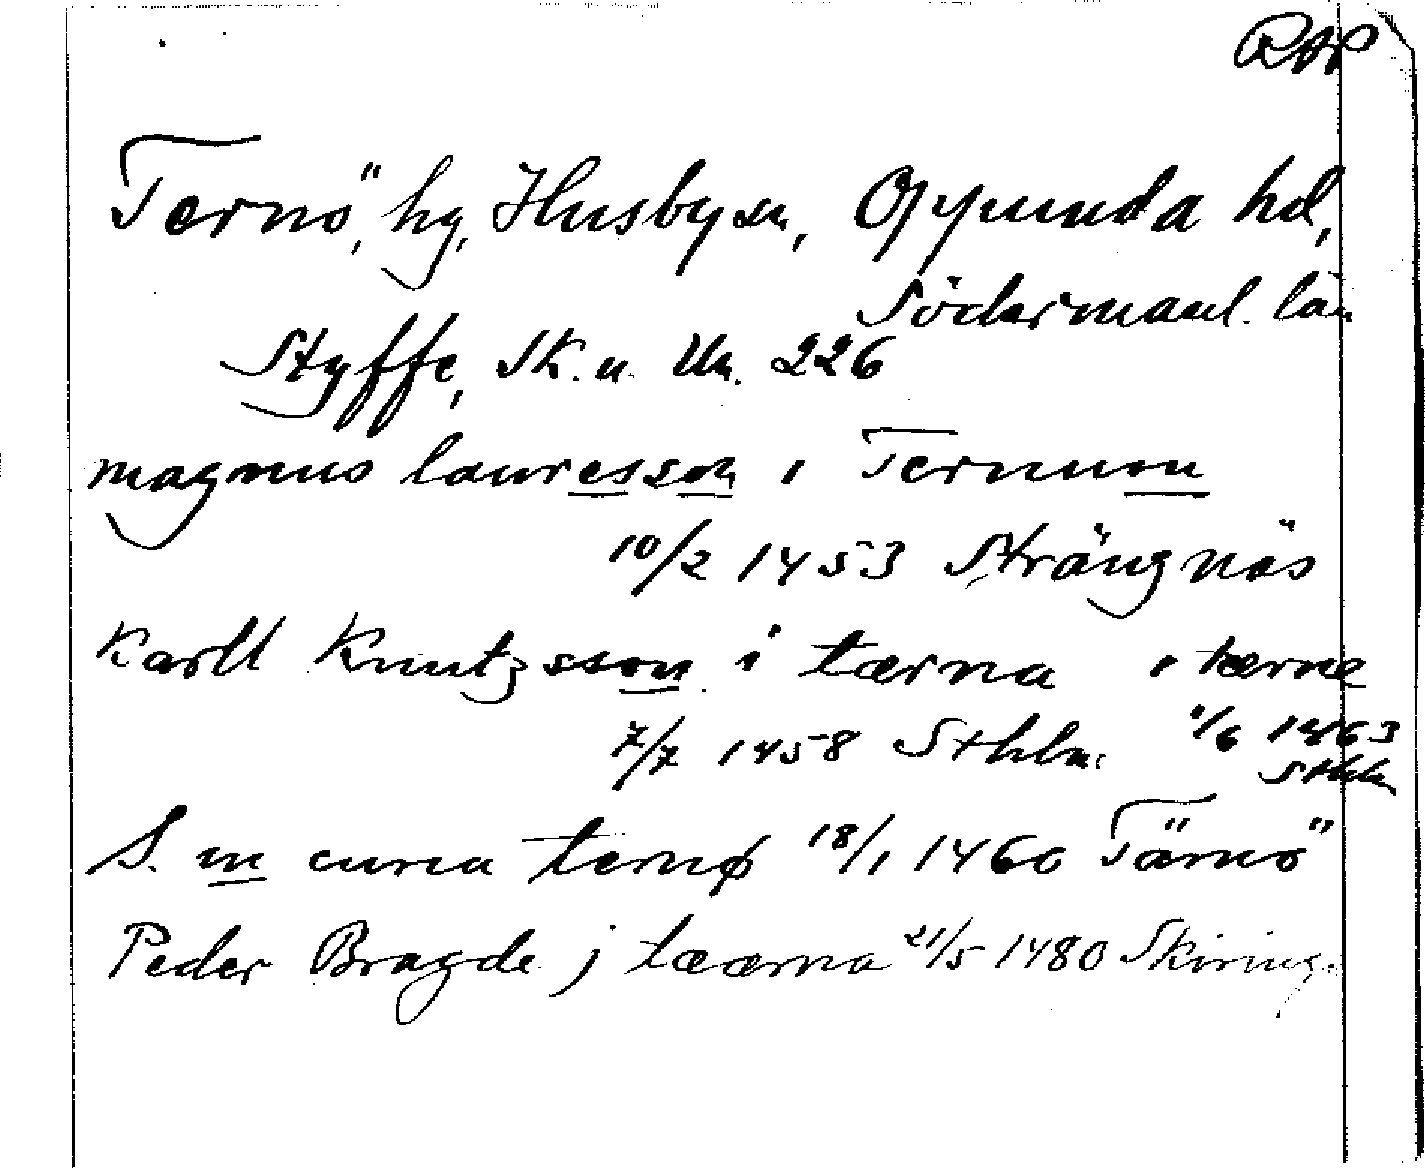 RAP
Ternö, hg, Husby sn, Oppunda hd,
Södermanl. län
Styffe, Sk. u. Un. 226
magnus lauresson i Ternuon
10/2 1453 Strängnäs
Karll Knutzsson i tærna i tærne
7/7 1458 Sthlm. 1/6 1463
Sthlm
S. in curia ternø 18/1 1460 Tärnö
Peder Bragde j tæærna 21/5 1480 Skining.